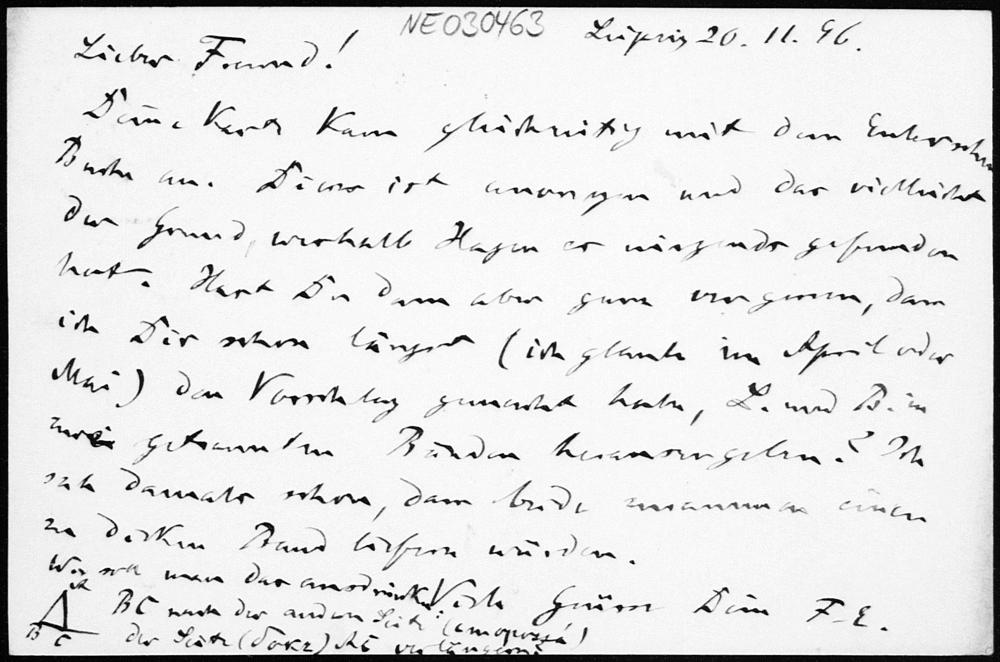 NE030463
Leipzig 20. 11. 96.
Lieber Freund!
Deine Karte kam gleichzeitig mit dem
Buche an. Dieses ist anonym und das vielleicht
der Grund, weshalb Hagen es nirgends gefunden
hat. Hast Du denn aber ganz vergessen, dass
ich Dir schon längst (ich glaube im April oder
Mai) den Vorschlag gemacht habe, L. und B. in
zwei getrennten Bänden herauszugeben? Ich
sah damals schon, dass beide zusammen einen
zu dicken Band liefern würden.
Wie soll man das ausdrücken:
Viele Grüsse Dein F. E.
A
B C
BC nach der andern Seite
der Seite AC verlängern?